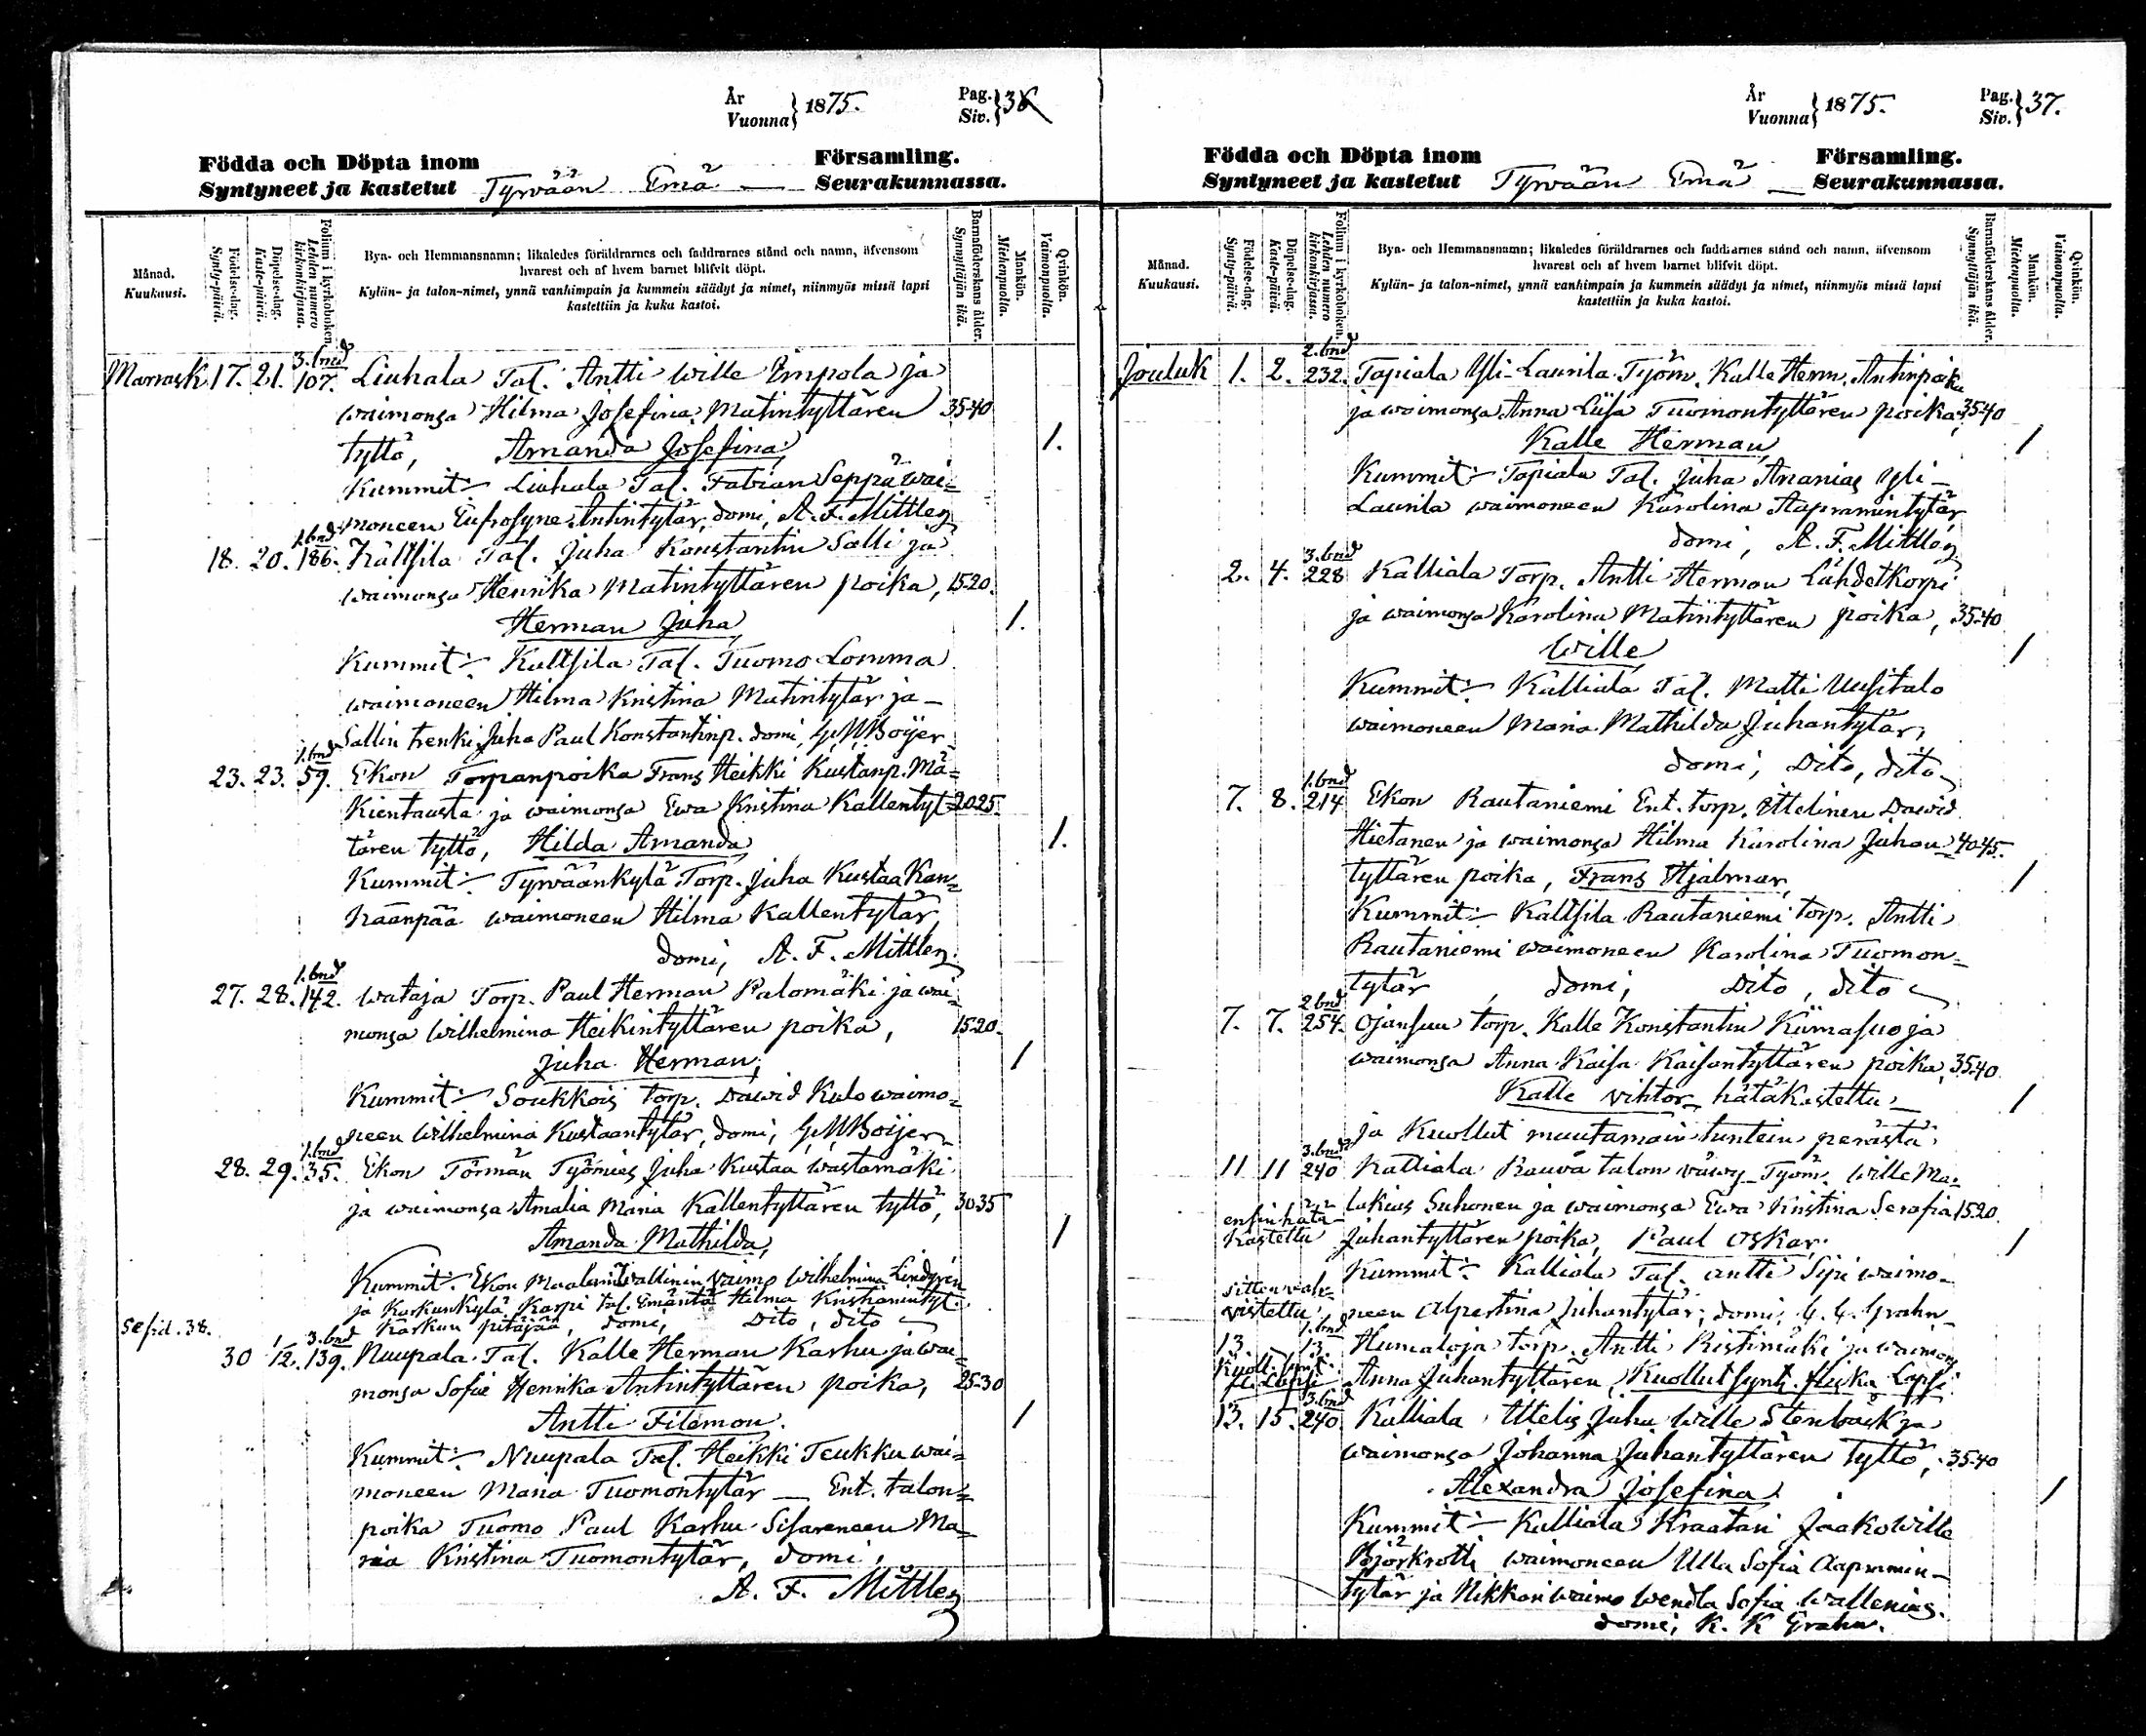 År
Vuonna } 1875.
Pag.
Siv. } 36
Födda och Döpta inom
Församling.
Syntyneet ja kastetut Tyrvään Emä — Seurakunnassa.
Månad.
Kuukausi.
Födelse-dag.
Synty-päivä.
Döpelse-dag.
Kaste-päivä.
Folium i kyrkoboken.
Lehden numero kirkonkirjassa.
Bya- och Hemmansnamn; likaledes föräldrarnes och faddrarnes stånd och namn, äfvensom
hvarest och af hvem barnet blifvit döpt.
Kylän- ja talon-nimet, ynnä vanhimpain ja kummein säädyt ja nimet, niinmyös missä lapsi
kastettiin ja kuka kastoi.
Barnaföderskans ålder.
Synnyttäjän ikä.
Mankön.
Miehenpuolta.
Qvinkön.
Vaimonpuolta.
3. bnd
Marrask. 17. 21. 107. Liuhala Tal. Antti Wille Pimpola ja
waimonsa Hilma Josefina Matintyttären 35-40
tyttö, Amanda Josefina, 1.
Kummit:- Liuhala Tal. Fabian Seppä wai=
moneen Eufrosyne Antintytär, domi, A. F. Mittler
1. bnd
18. 20. 186. Kaltsila Tal. Juha Konstantin Salli ja
waimonsa Henrika Matintyttären poika, 15-20.
Herman Juha 1.
Kummit:- Kaltsila Tal. Tuomo Lomma
waimoneen Hilma Kristina Matintytär ja —
Sallin trenki Juha Paul Konstantinp. domi, G. M. Boijer
1. bnd
23. 23. 59. Ekon Torpanpoika Frans Heikki Kustanp. Mä=
kientausta ja waimonsa Ewa Kristina Kallentyt= 20-25.
tären tyttö, Hilda Amanda 1.
Kummit:- Tyrväänkylä Torp. Juha Kustaa Kan=
käänpää waimoneen Hilma Kallentytär
domi, A. F. Mittler
1. bnd
27. 28. 142. Wataja Torp. Paul Herman Palomäki ja wai=
monsa Wilhelmina Heikintyttären poika, 15-20.
Juha Herman, 1
Kummit:- Soukkois torp. Dawid Kulo waimo=
neen Wilhelmina Kustaantytär, domi, G. M. Boijer
1. bnd
28. 29. 35. Ekon Törmän Työmies Juha Kustaa Wastamäki
ja waimonsa Amalia Maria Kallentyttären tyttö, 30-35
Amanda Mathilda, 1
Kummit:- Ekon Maalari Wallinin vaimo Wilhelmina Lindgrén
ja Karkunkylä Karpi tal. Emäntä Hilma Kristianintyt.
Karkun pitäjää, domi, Dito, dito
Se sid. 38.
3. bnd
30 1/12. 139. Nuupala Tal. Kalle Herman Karhu ja wai=
monsa Sofia Henrika Antintyttären poika, 25-30
Antti Filemon. 1
Kummit:- Nuupala Tal. Heikki Teukku wai=
moneen Maria Tuomontytär — Ent. talon=
poika Tuomo Paul Karhu Sisareneen Ma=
ria Kristina Tuomontytär, domi,
A. F. Mittler
År
Vuonna } 1875.
Pag.
Siv. } 37.
Födda och Döpta inom
Församling.
Syntyneet ja kastetut Tyrvään Emä — Seurakunnassa.
Månad.
Kuukausi.
Födelse-dag.
Synty-päivä.
Döpelse-dag.
Kaste-päivä.
Folium i kyrkoboken.
Lehden numero kirkonkirjassa.
Bya- och Hemmansnamn; likaledes föräldrarnes och faddrarnes stånd och namn, äfvensom
hvarest och af hvem barnet blifvit döpt.
Kylän- ja talon-nimet, ynnä vanhimpain ja kummein säädyt ja nimet, niinmyös missä lapsi
kastettiin ja kuka kastoi.
Barnaföderskans ålder.
Synnyttäjän ikä.
Mankön.
Miehenpuolta.
Qvinkön.
Vaimonpuolta.
2. bnd
Jouluk 1. 2. 232. Tapiala Yli-Laurila Työm. Kalle Herm. Antinpoika
ja waimonsa Anna Liisa Tuomontyttären poika, 35-40
Kalle Herman, 1
Kummit:- Tapiala Tal. Juha Ananias Yli-
Laurila waimoneen Karolina Aapramintytär
domi, A. F. Mittler
3. bnd
2. 4. 228 Kalliala Torp. Antti Herman Lähdetkorpi
ja waimonsa Karolina Matintyttären poika, 35-40
Wille, 1
Kummit:- Kalliala Tal. Matti Uusitalo
waimoneen Maria Mathilda Juhantytär,
domi, Dito, dito
1. bnd
7. 8. 214 Ekon Rautaniemi Ent. torp. Ittelinen Dawid
Hietanen ja waimonsa Hilma Karolina Juhan= 40-45.
tyttären poika, Frans Hjalmar, 1
Kummit:- Kaltsila Rautaniemi torp. Antti
Rautaniemi waimoneen Karolina Tuomon=
tytär, domi, Dito, dito
2 bnd
7. 7. 254. Ojansuu torp. Kalle Konstantin Kiimasuo ja
waimonsa Anna Kaisa Kaisantyttären poika, 35-40
Kalle Vihtor, hätäkastettu 1
ja Kuollut muutamain tuntein perästä
3. bnd
11 11 240 Kalliala Rauvä talon väwy Työm. Wille Ma=
lakias Suhonen ja waimonsa Ewa Kristina Serafia 15-20.
ensin hätä-
kastettu Juhantyttären poika, Paul Oskar. 1
Kummit:- Kalliala Tal. Antti Sipi waimo=
sitten vah=
vistettu neen Alpertina Juhantytär; domi, C. C. Grahn
1. bnd
13. — 13. Humaloja torp. Antti Ristimäki ja waimons
Kuoll. synt. Lapsi Anna Juhantyttären, Kuollut synt. Lapsi
3. bnd
13. 15. 240. Kalliala Ittelis Juha Wille Stenbäck ja
waimonsa Johanna Juhantyttären tyttö, 35-40
Alexandra Josefina. 1
Kummit:- Kalliala Kraatari Jaako Wille
Björkroth waimoneen Ulla Sofia Aapramin-
tytär ja Nikkari waimo Wendla Sofia Wallenius.
domi, K. K Grahn.